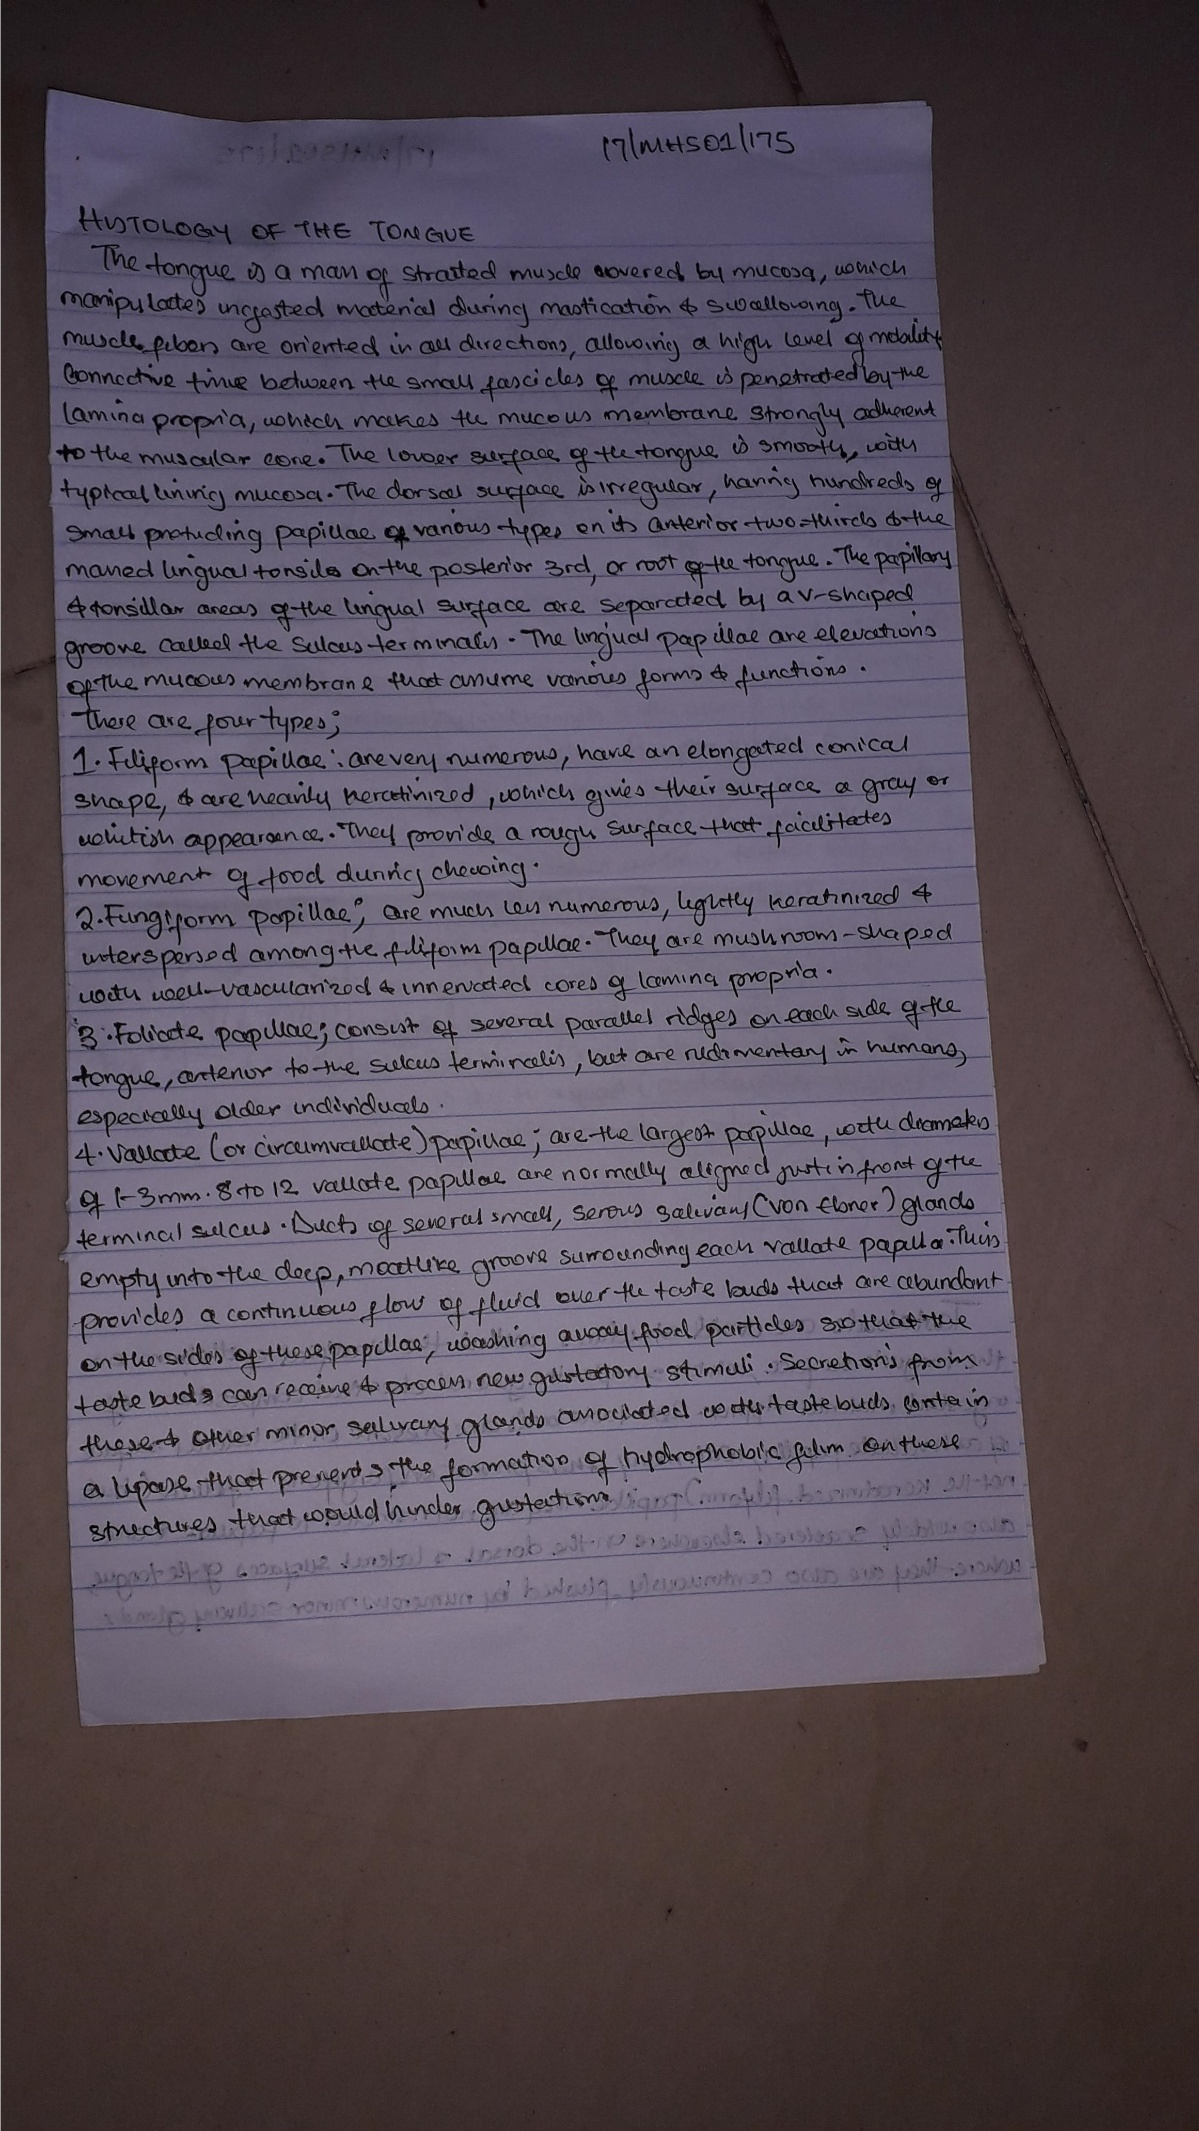 17/MHS01/175
HISTOLOGY OF THE TONGUE
The tongue is a mass of straited muscle covered by mucosa, which
manipulates ingested material during mastication & swallowing. The
muscle fibers are oriented in all directions, allowing a high level of mobility
Connective tissue between the small fascicles of muscle is penetrated by the
lamina propria, which makes the mucous membrane strongly adherent
to the muscular core. The lower surface of the tongue is smooth, with
typical lining mucosa. The dorsal surface is irregular, having hundreds of
small protuding papillae of various types on its anterior two-thirds & the
massed lingual tonsils on the posterior 3rd, or root of the tongue. The papillary
& tonsillar areas of the lingual surface are separated by a v-shaped
groove called the sulcus terminalis. The lingual papillae are elevations
of the mucous membrane that assume various forms & functions.
There are four types;
1. Filiform papillae: are very numerous, have an elongated conical
shape, & are heavily keratinized, which gives their surface a gray or
whitish appearance. They provide a rough surface that facilitates
movement of food during chewing.
2. Fungiform papillae; are much less numerous, lightly keratinized &
interspersed among the filiform papillae. They are mushroom-shaped
with well-vascularized & innervated cores of lamina propria.
3. Foliate papillae; consist of several parallel ridges on each side of the
tongue, anterior to the sulcus terminalis, but are rudimentary in humans,
especially older individuals.
4. Vallate (or circumvallate) papillae; are the largest papillae, with diameters
of 1-3mm. 8 to 12 vallate papillae are normally aligned just in front of the
terminal sulcus. Ducts of several small, serous salivary (von Ebner) glands
empty into the deep, moatlike groove surrounding each vallate papilla. This
provides a continuous flow of fluid over the taste buds that are abundant
on the sides of these papillae, washing away food particles so that the
taste buds can receive & process new gustatory stimuli. Secretions from
these & other minor salivary glands associated with taste buds contain
a lipase that prevents the formation of hydrophobic film on these
structures that would hinder gustation.